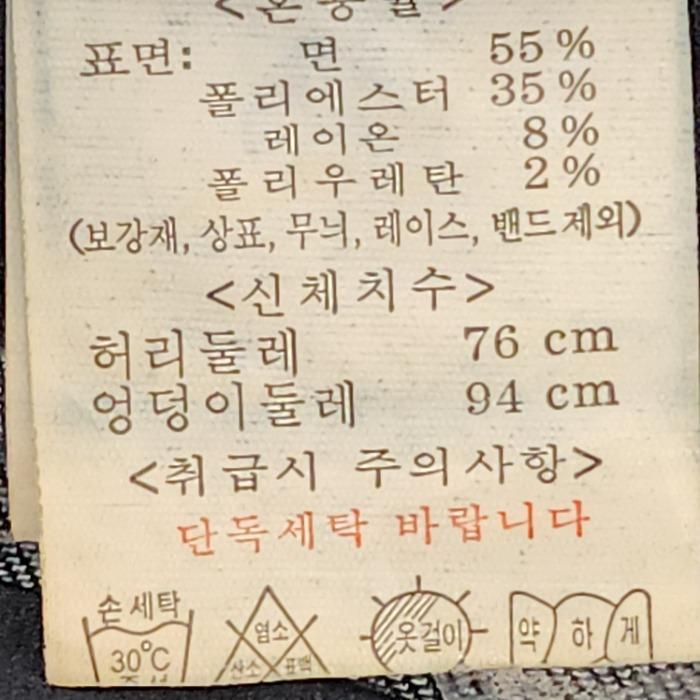 <혼용율>
표면: 면 55%
폴리에스터 35%
레이온 8%
폴리우레탄 2%
(보강재, 상표, 무늬, 레이스, 밴드제외)
<신체치수>
허리둘레 76 cm
엉덩이둘레 94 cm
<취급시 주의사항>
단독세탁 바랍니다
손세탁
30°C
염소
산소 표백
옷걸이
약하게